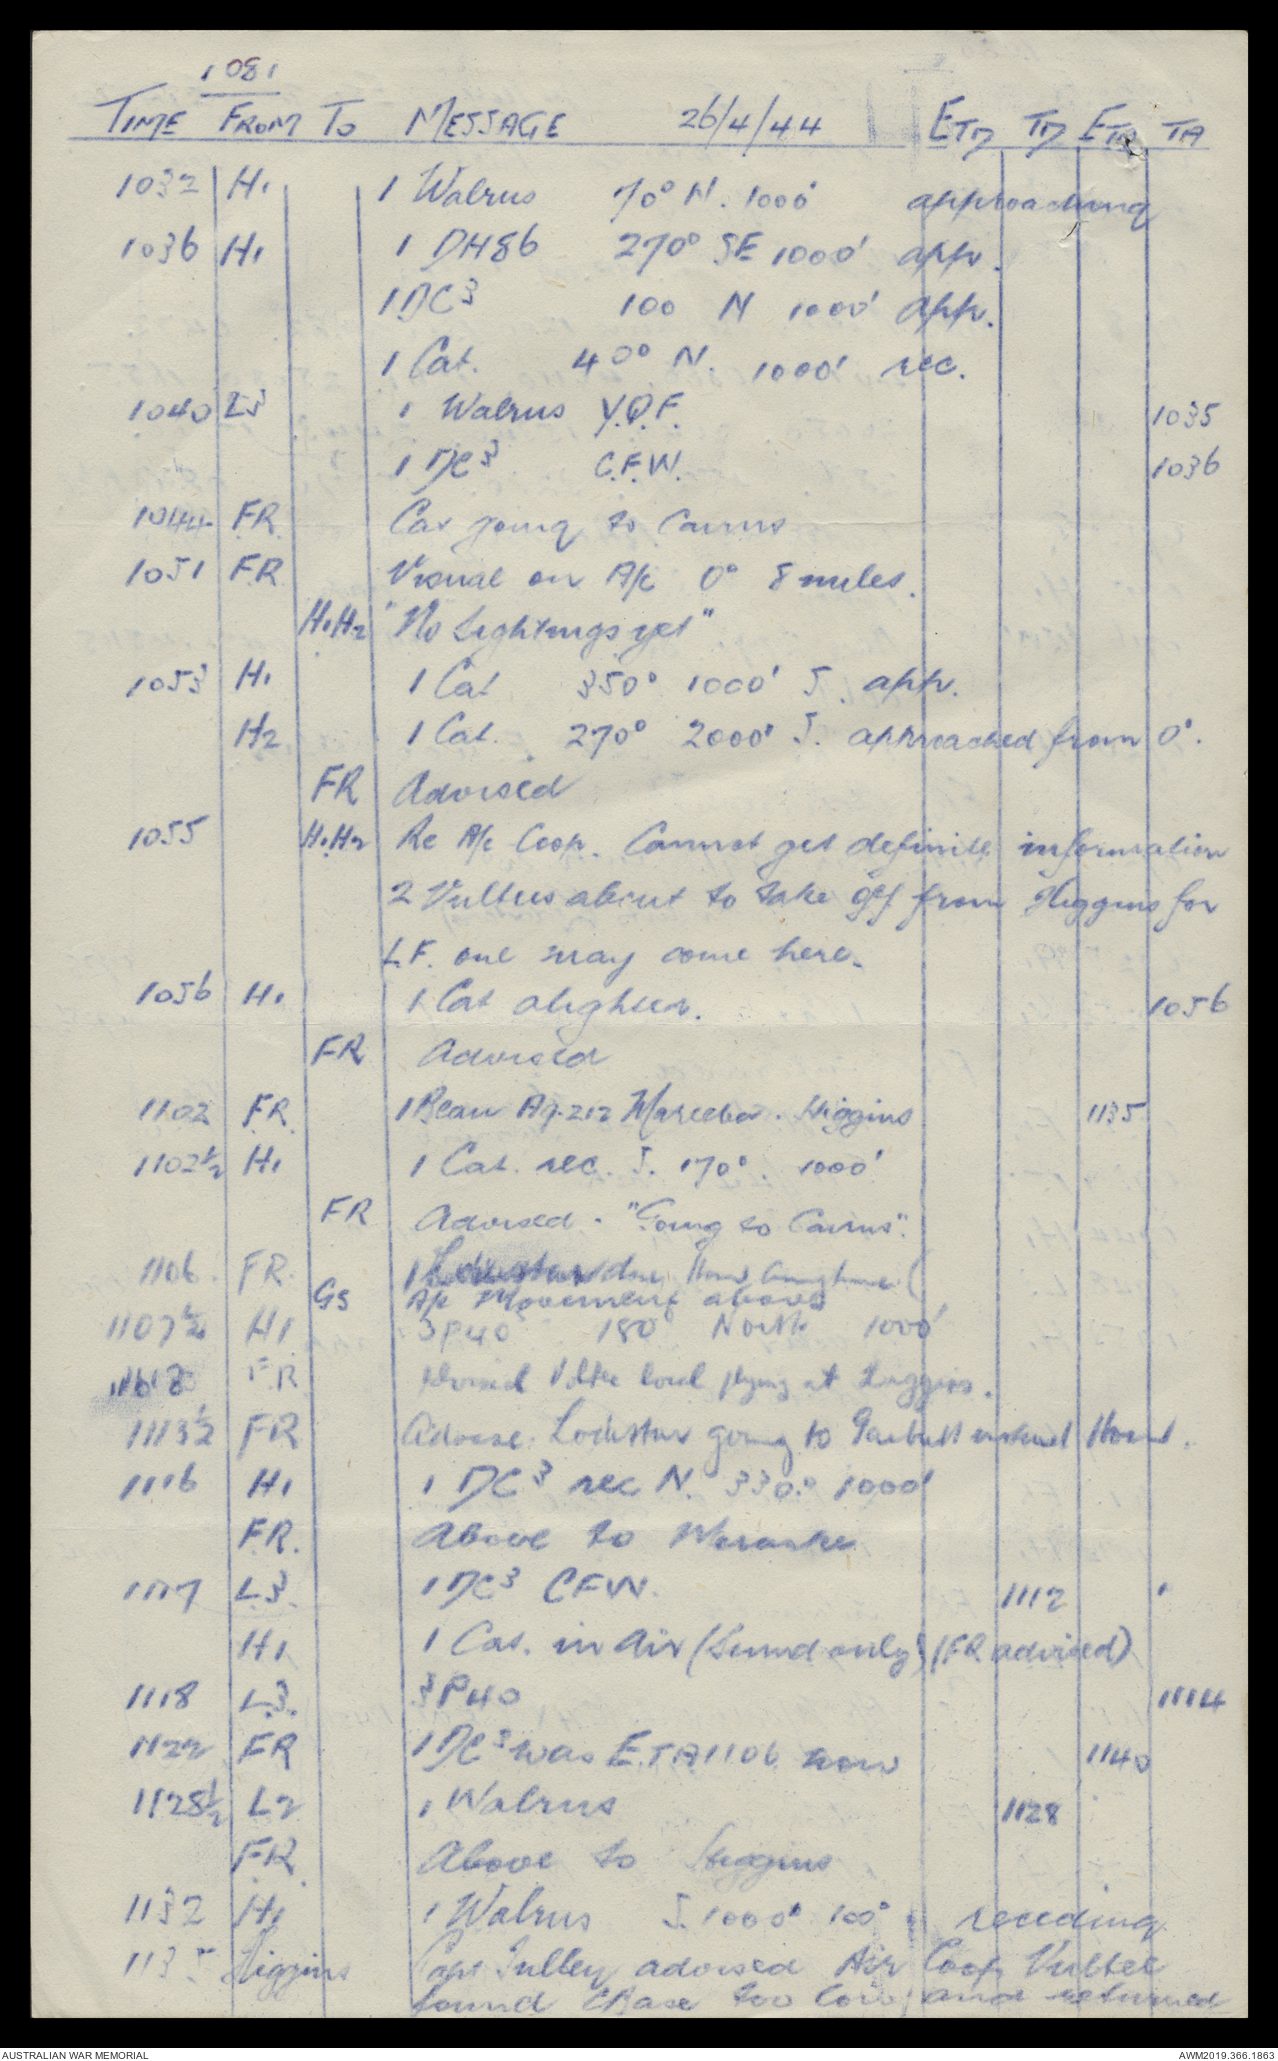 1081
TIME FROM TO MESSAGE 26/4/44 ETD TD ETA TA
1032 H1 1 Walrus 70° N. 1000' approaching
1036 H1 1 DH86 270° SE 1000' app.
1 DC3 100 N 1000' app.
1 Cat. 40° N. 1000' rec.
1040 L3 1 Walrus Y.Q.F. 1035
1 DC3 C.F.W. 1036
1044 FR Cat going to Cairns
1051 FR Visual on A/c 0° 8 miles.
H1H2 "No Lightnings yet"
1053 H1 1 Cat 350° 1000' S. app.
H2 1 Cat. 270° 2000' S. approached from 0°.
FR Advised
1055 H1H2 Re A/c Coop. Cannot get definite information
2 Vultees about to take off from Higgins for
L.F. one may come here.
1056 H1 1 Cat alighted. 1056
FR Advised
1102 FR 1 Beau A9-212 Mareeba - Higgins 1135
1102½ H1 1 Cat. rec. S. 170°. 1000'
FR Advised - "Going to Cairns".
1106 FR 1 Lodestar due Horn
GS A/c Movement above
1107½ H1 3 P40 180° North 1000'
FR Vultee local flying at Higgins.
1113½ FR Advise. Lodestar going to Garbutt instead Horn.
1116 H1 1 DC3 rec N. 330° 1000'
FR. Above to Merauke
1117 L3. 1 DC3 CFW. 1112
H1 1 Cat. in Air (Sound only) (FR advised)
1118 L3. 3 P40 1114
1122 FR 1 DC3 was E.T.A 1106 now 1140
1128½ L2 1 Walrus 1128
FR Above to Higgins
1132 H1 1 Walrus S. 1000' 100° receding
1135 Higgins Capt Tulley advised Air Coop Vultee
found CBase too low, and returned
AUSTRALIAN WAR MEMORIAL AWM2019.366.1863